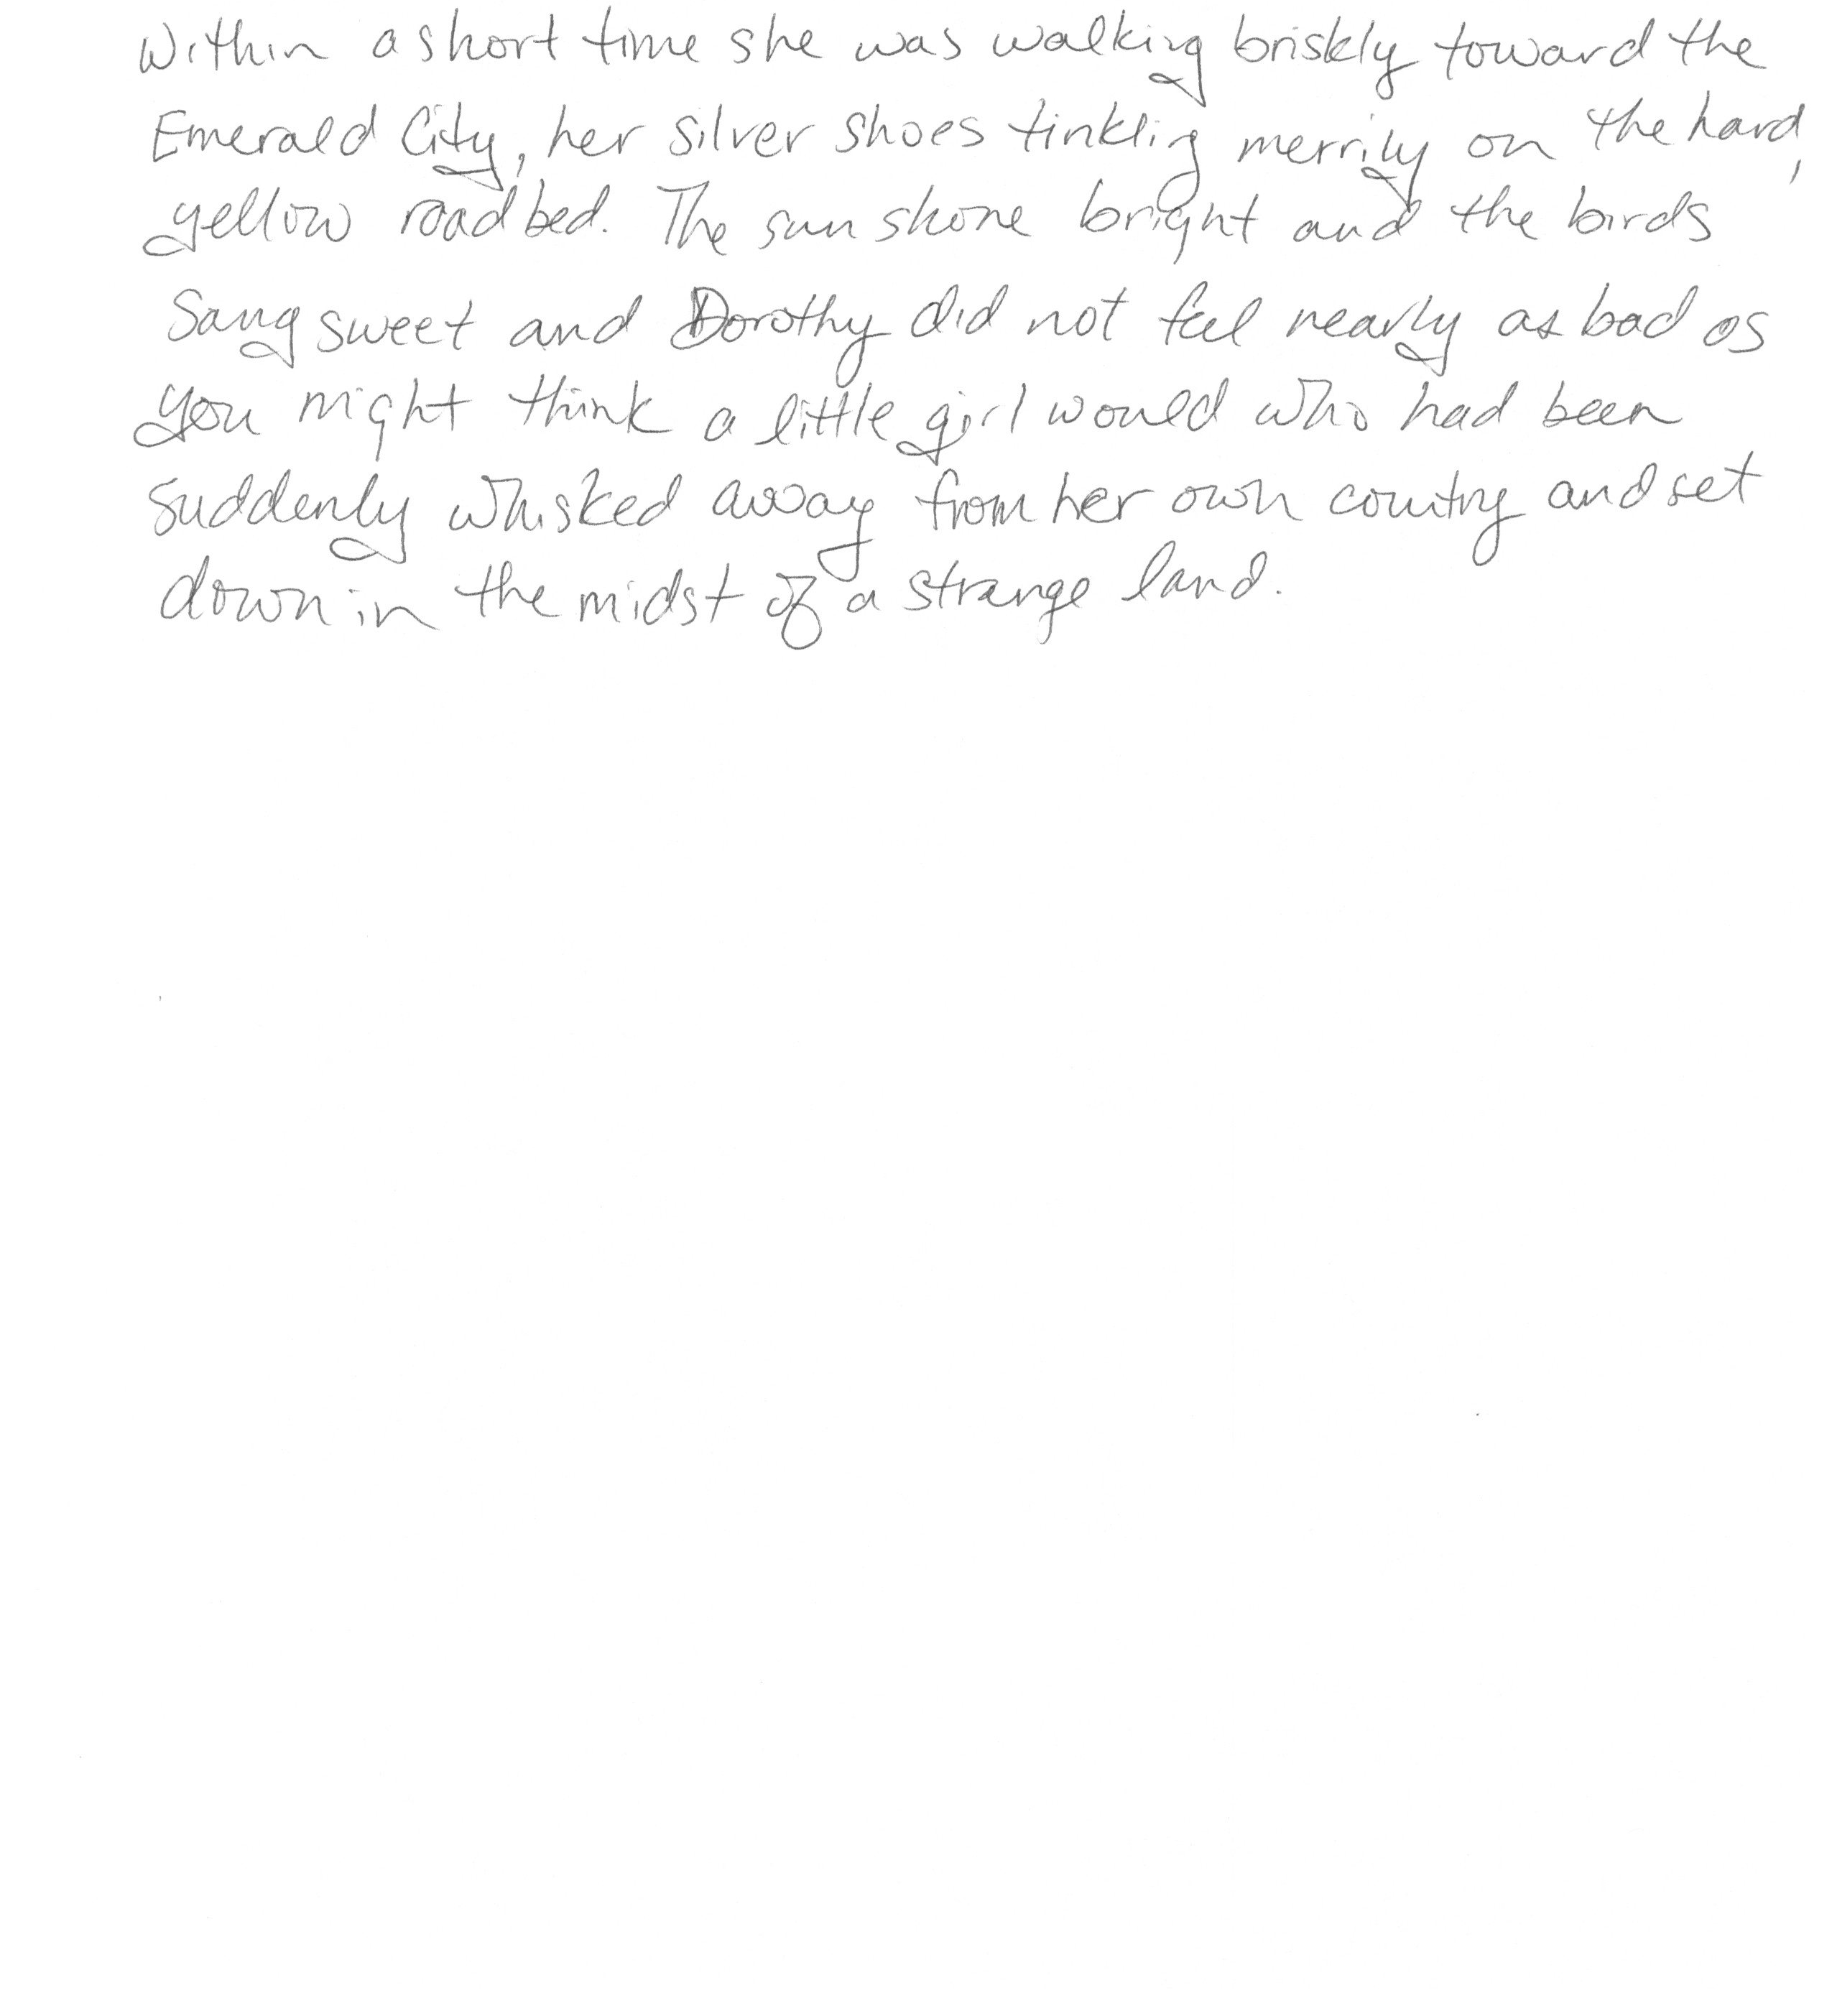 Within a short time she was walking briskly toward the
Emerald City, her silver shoes tinkling merrily on the hard,
yellow roadbed. The sun shone bright and the birds
sang sweet and Dorothy did not feel nearly as bad as
you might think a little girl would who had been
suddenly whisked away from her own country and set
down in the midst of a strange land.